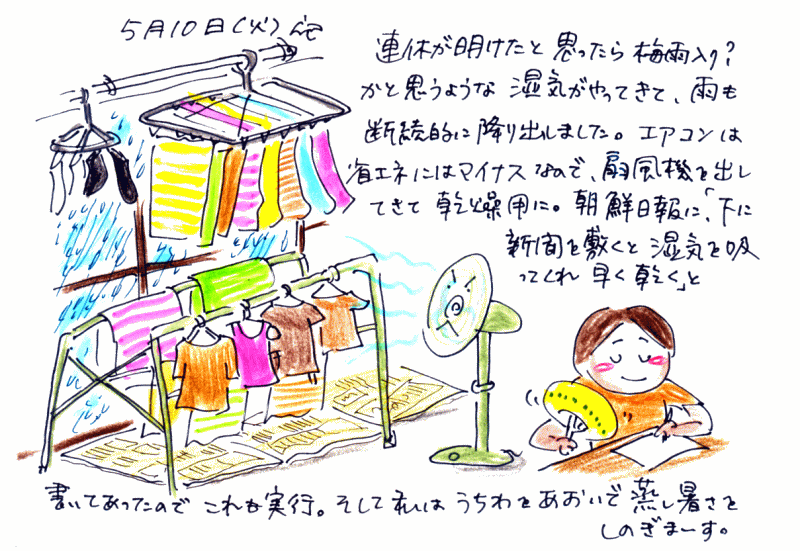 5月10日(火)
連休が明けたと思ったら梅雨入り?
かと思うような湿気がやってきて、雨も
断続的に降り出しました。エアコンは
省エネにはマイナスなので、扇風機を出し
てきて乾燥用に。朝鮮日報に、「下に
新聞を敷くと湿気を吸
ってくれ早く乾く」と
書いてあったのでこれも実行。そして私はうちわをあおいで蒸し暑さを
しのぎまーす。